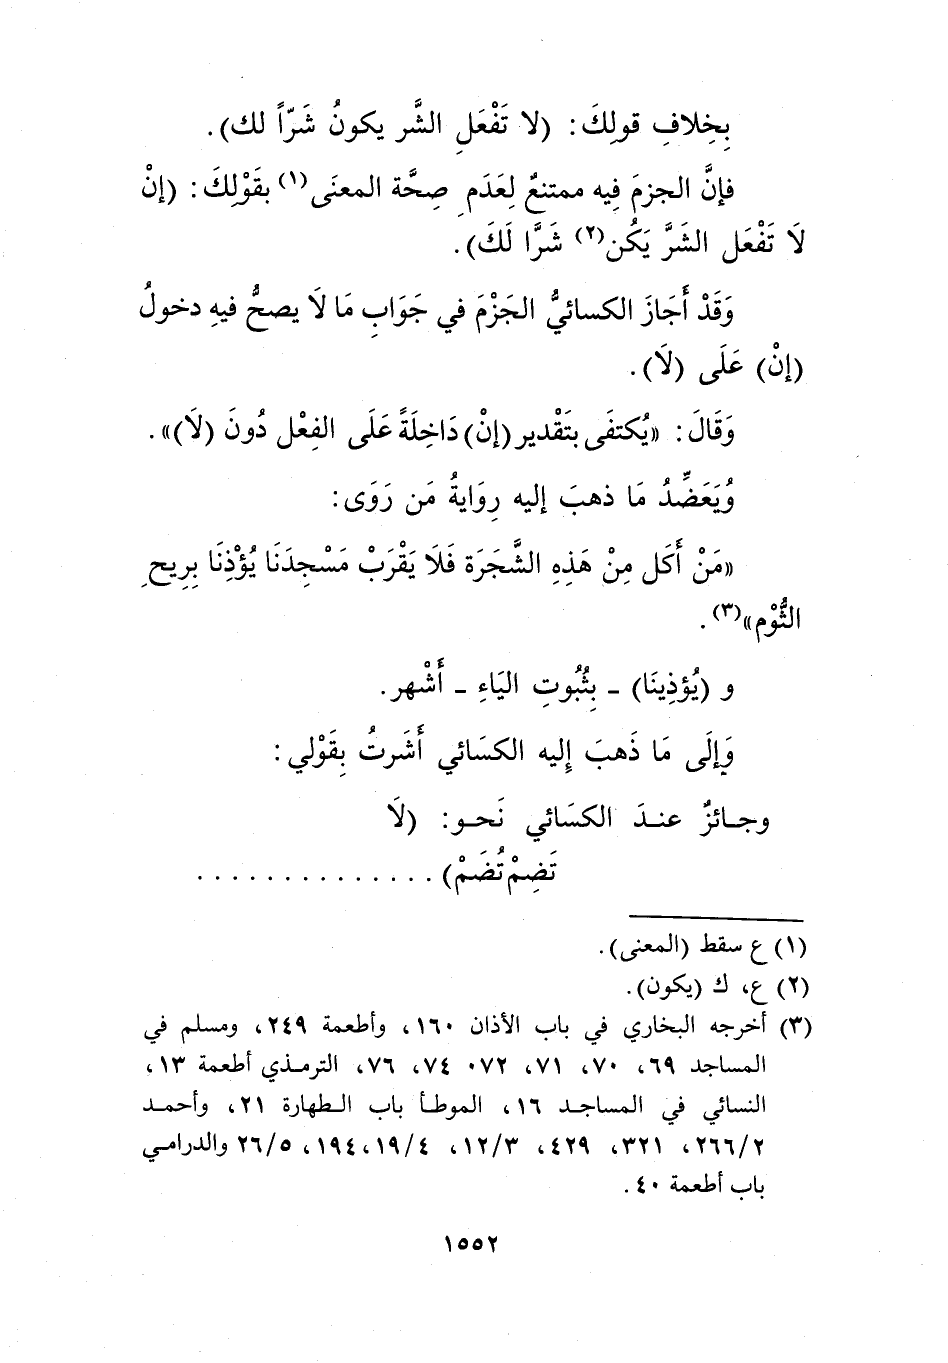 بِخِلافِ قولِكَ: (لا تَفْعَلِ الشَّر يكونُ شَرّاً لك).
فإنَّ الجزمَ فِيه ممتنعٌ لِعَدَمِ صِحَّة المعنَى(١) بقَوْلِكَ: (إنْ
لَا تَفْعَل الشَرَّ يَكُن(٢) شَرًّا لَكَ).
وَقَدْ أَجَازَ الكسائيُّ الجَزْمَ في جَوَابِ مَا لَا يصحُّ فيهِ دخولُ
(إنْ) عَلَى (لَا).
وَقَالَ: «يُكتفَى بتَقْدير (إنْ) دَاخِلَةً عَلَى الفِعْل دُونَ (لَا)».
وُيَعَضِّدُ مَا ذهبَ إليه رِوَايةُ مَن رَوَى:
«مَنْ أَكَل مِنْ هَذِهِ الشَّجَرَة فَلَا يَقْرَبْ مَسْجِدَنَا يُؤْذِنَا بِرِيحِ
الثُّوْمِ»(٣).
و (يُؤذِينَا) - بِثُبُوتِ اليَاءِ - أَشْهر.
وَإِلَى مَا ذَهبَ إِليه الكسَائي أَشَرتُ بِقَوْلي:
وجائزٌ عندَ الكسَائي نَحو: (لَا
تَضِمْ تُضَمْ) ..............
(١) ع سقط (المعنى).
(٢) ع، ك (يكون).
(٣) أخرجه البخاري في باب الأذان ١٦٠، وأطعمة ٢٤٩، ومسلم في
المساجد ٦٩، ٧٠، ٧١، ٧٢، ٧٤، ٧٦، الترمذي أطعمة ١٣،
النسائي في المساجد ١٦، الموطأ باب الطهارة ٢١، وأحمد
٢/٢٦٦، ٣٢١، ٤٢٩، ٣/١٢، ٤/١٩، ١٩٤، ٥/٢٦ والدرامي
باب أطعمة ٤٠.
١٥٥٢